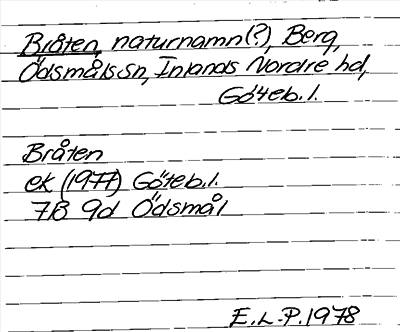 Bråten, naturnamn(?), Berg,
Ödsmåls sn, Inlands Nordre hd,
Göteb. l.
Bråten
ek (1977) Göteb. l.
7B 9d Ödsmål
E.L-P. 1978